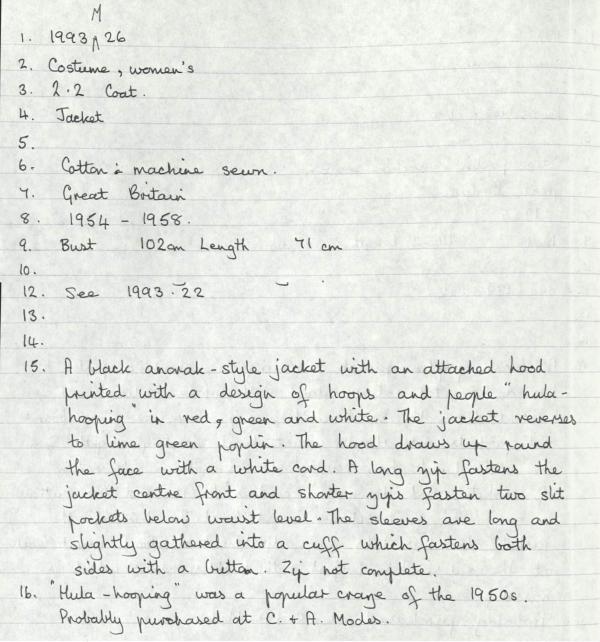 M
1. 1993 ∧ 26
2. Costume, women's
3. 2.2 Coat.
4. Jacket
5.
6. Cotton: machine sewn.
7. Great Britain
8. 1954 - 1958.
9. Bust 102cm Length 71 cm
10.
12. See 1993.22
13.
14.
15. A black anorak-style jacket with an attached hood
printed with a design of hoops and people "hula-
hooping" in red, green and white. The jacket reverses
to lime green poplin. The hood draws up round
the face with a white cord. A long zip fastens the
jacket centre front and shorter zips fasten two slit
pockets below waist level. The sleeves are long and
slightly gathered into a cuff which fastens both
sides with a button. Zip not complete.
16. "Hula-hooping" was a popular craze of the 1950s.
Probably purchased at C. & A. Modes.